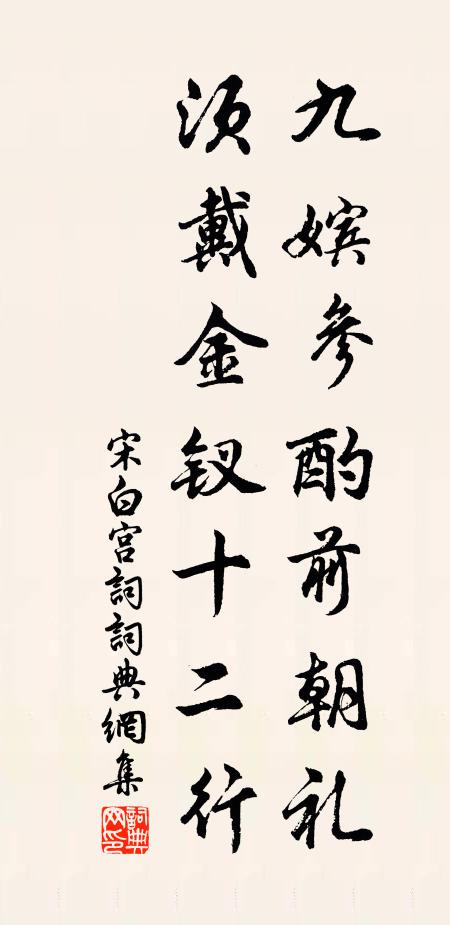 九嫔參酌前朝礼
须戴金钗十二行
宋白宫詞詞典網集
詞典網印